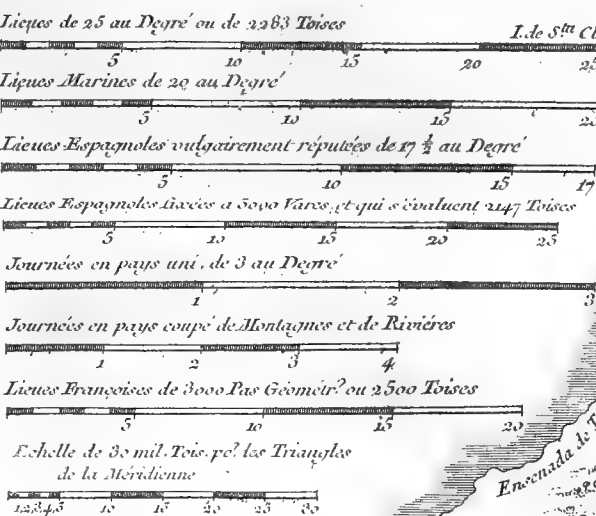 Lieues de 25 au Degré ou de 2283 Toises
I. de Sta Cl
5 10 15 20 25
Lieues Marines de 20 au Degré
5 10 15 20
Lieues Espagnoles vulgairement réputées de 17 ½ au Degré
5 10 15 17
Lieues Espagnoles fixées a 5000 Vares, et qui s'évaluent 2147 Toises
5 10 15 20 25
Journées en pays uni, de 3 au Degré
1 2 3
Journées en pays coupé de Montagnes et de Riviéres
1 2 3 4
Lieues Françoises de 3000 Pas Géométr.? ou 2500 Toises
5 10 15 20
Echelle de 30 mil. Tois. pr. les Triangles
de la Méridienne
1 2 3 4 5 10 15 20 25 30
Ensenada de T